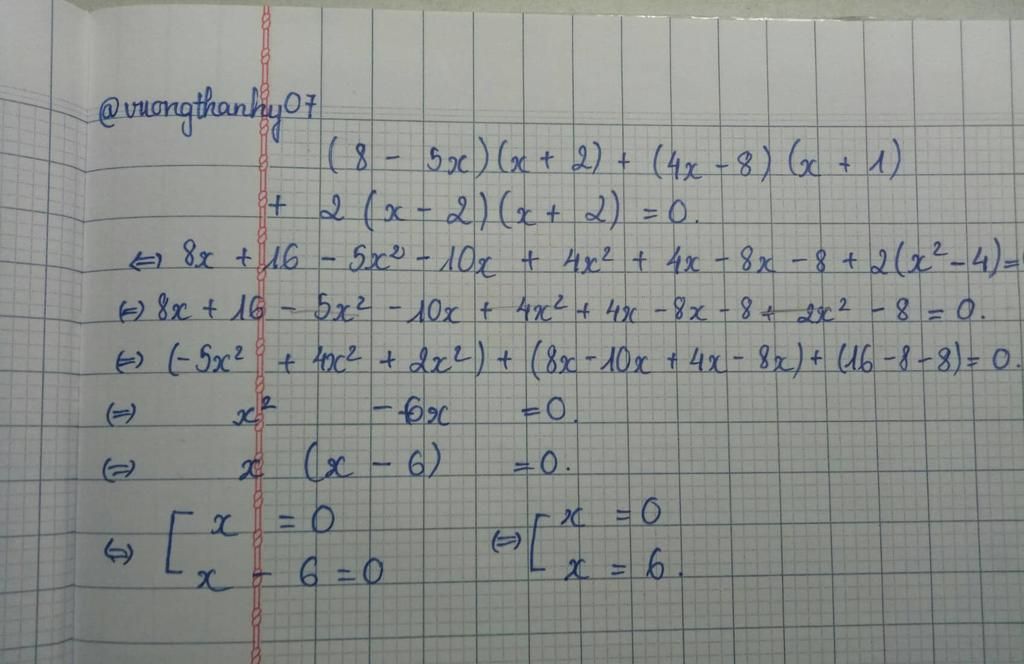 @vuongthanhy07
(8 - 5x)(x + 2) + (4x - 8)(x + 1)
+ 2(x - 2)(x + 2) = 0.
⇔ 8x + 16 - 5x² - 10x + 4x² + 4x - 8x - 8 + 2(x² - 4) =
⇔ 8x + 16 - 5x² - 10x + 4x² + 4x - 8x - 8 + 2x² - 8 = 0.
⇔ (-5x² + 4x² + 2x²) + (8x - 10x + 4x - 8x) + (16 - 8 - 8) = 0.
⇔ x² - 6x = 0.
⇔ x (x - 6) = 0.
⇔ [ x = 0 ⇔ [ x = 0
x - 6 = 0 x = 6.